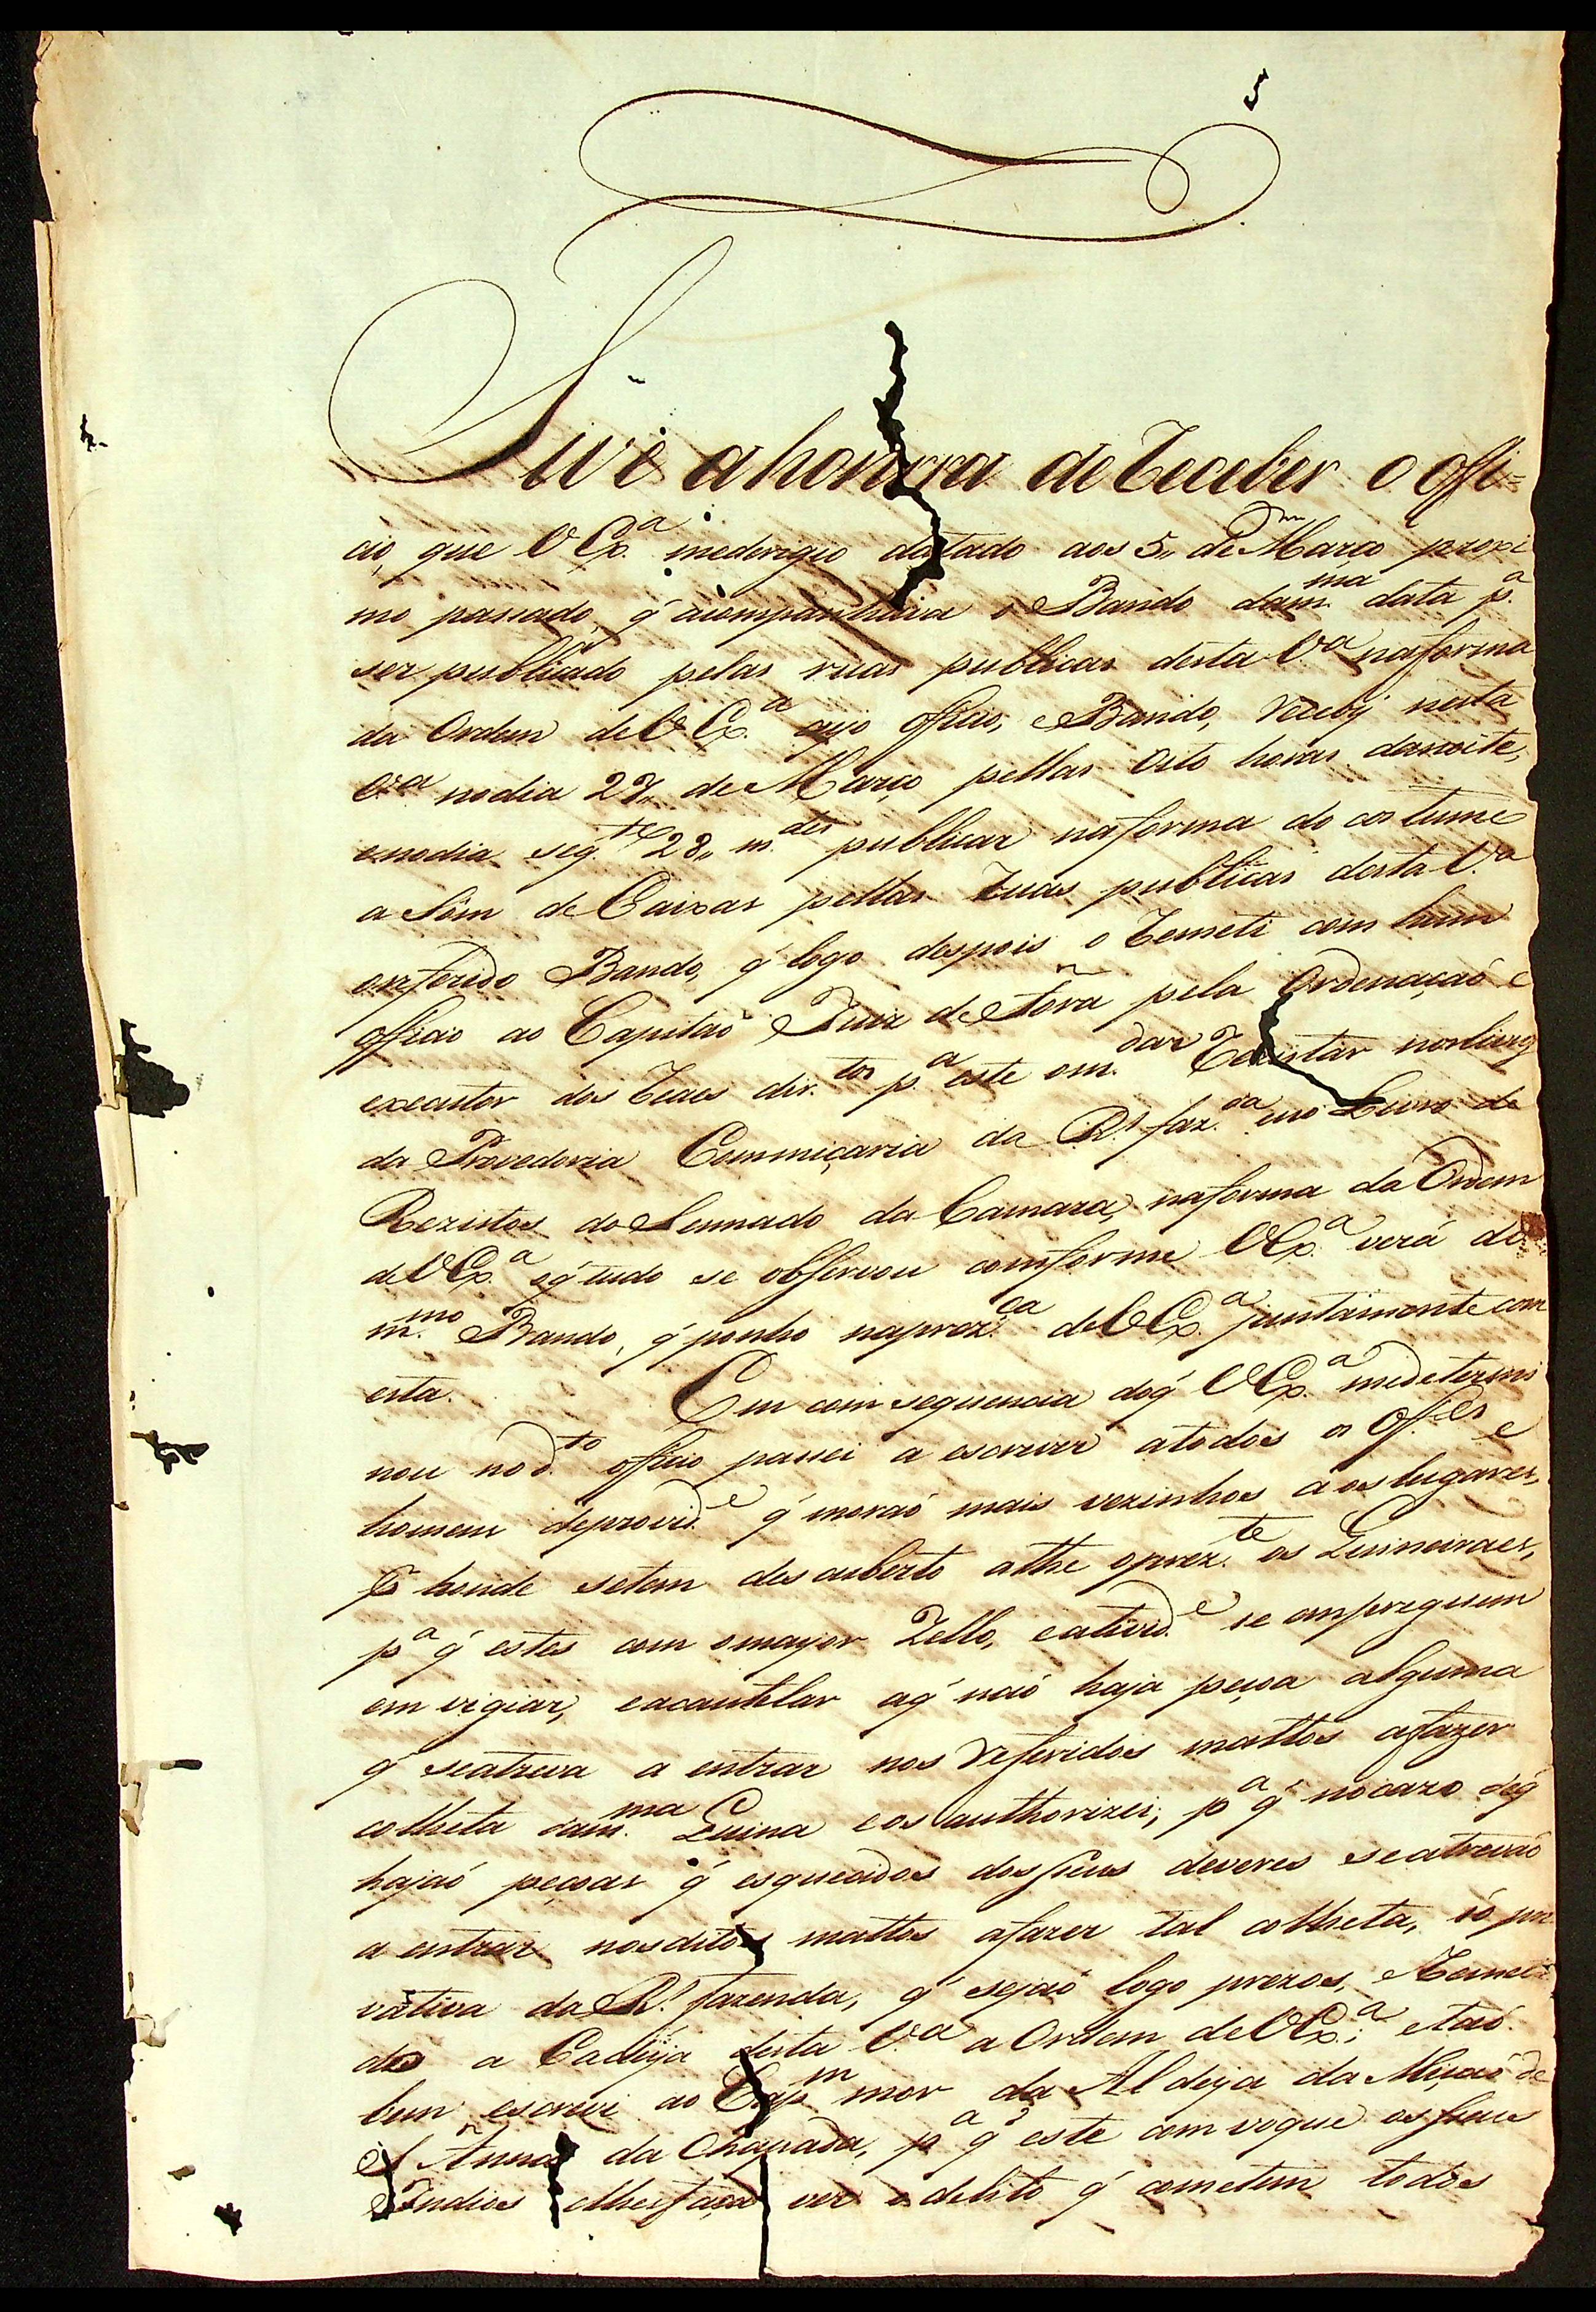 5
Tive a honrra de Receber o offi=
cio, que V Ex.ª mederigio datado aos 5,, de Março proxi
mo passado, q' acompanhava o Bando dam.ma data p.ª
ser publicado pelas ruas publicas desta V.ª naforma
da Ordem de V Ex.ª cujo officio, e Bando, recebÿ nesta
V.ª nodia 27,, de Março pellas Oito horas danoite,
enodia seg.te 28,, m.dei publicar naforma do costume
a Sôm de Caixas pellas Ruas publicas desta V.ª
oreferido Bando, q' logo despois o Remeti com hum
officio ao Capitaõ Juiz de Fora pela Ordenaçaõ e
executor dos Reaes dir.tos p.ª este om.dar Rezistar nosliuros
da Provedoria Commiçaria da R.l faz.da eno Liuro de
Rezistos do Sennado da Camara, naforma da Ordem
de V Ex.ª oq' tudo se observou comforme V Ex.ª verá do
m.mo Bando, q' ponho naprez.ca de V Ex.ª juntamente com
esta. Em comsequencia doq' V Ex.ª medetermi
nou nod.to officio passei a escrever atodos os Off.es e
homens deprovid.e q' moraõ mais vezinhos aos lugares,
p.r honde setem descuberto athe oprez.te os Quineiraes,
p.ª q' estes com omayor Zello, eativid.e se empreguem
em vigiar, eacautelar aq' naõ haja peçoa alguma
q' seatreva a entrar nos referidos mattos afazer
colheta dam.ma Quina eos authorizei, p.ª q' nocazo deq'
hajaõ peçoas q' esquecidos dosseus deveres seatrevaõ
a entrar nosditos mattos afazer tal colheta, só pri
vativa da R.l fazenda, q' sejaõ logo prezos, e Remeti
dos a Cadeÿa desta V.ª a Ordem de V Ex.ª; etaõ
bem escrevi ao Cap.m mor da Aldeya da Miçaõ de
S Anna da Chapada, p.ª q' este comvogue osseus
Indios elhesfaça ver o delito q' cometem todos